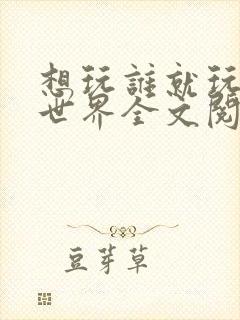 想玩誰就玩
世界全文閱
豆芽草